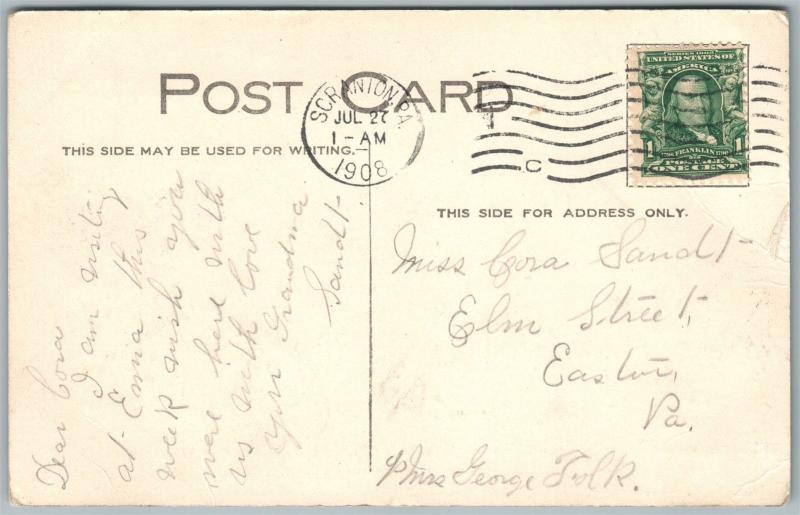 POST CARD
THIS SIDE MAY BE USED FOR WRITING.
SCRANTON, PA.
JUL 27
1-AM
1908
T
C
SERIES 1902
UNITED STATES OF
AMERICA
1 FRANKLIN 1
POSTAGE
ONE CENT
THIS SIDE FOR ADDRESS ONLY.
Dear Cora
I am visiting
at Ema this
week wish you
were here with
us with love
your Grandma
Sandt
Miss Cora Sandt
Elm Street,
Easton,
Pa.
℅ Mrs George Folk.